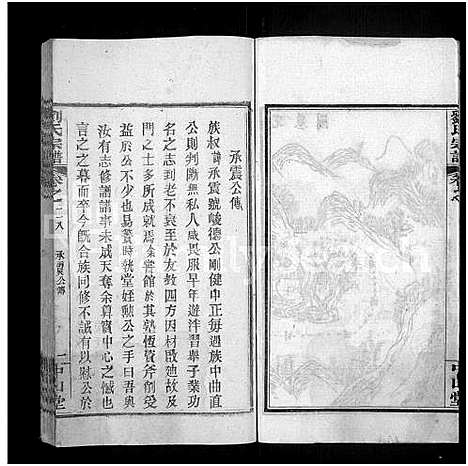 劉氏宗譜
卷之
中山堂
承震公傳
族叔諱承震號峻德公剛健中正每遇族中曲直
公則判斷無私人咸畏服早年遊泮習舉子業功
名之志到老不衰至於友教四方因材敗廸故及
門之士多所成就焉余嘗館於其塾恆資斧劑受
益於公也不少易簀時余堂姪勲公之手曰吾與
汝有志修譜譜事未成天奪余算實中心之憾也
言之之暮而卒今旣合族同修不誠有以慰公於
劉氏宗譜
卷之二八
承震公傳
一
中山堂